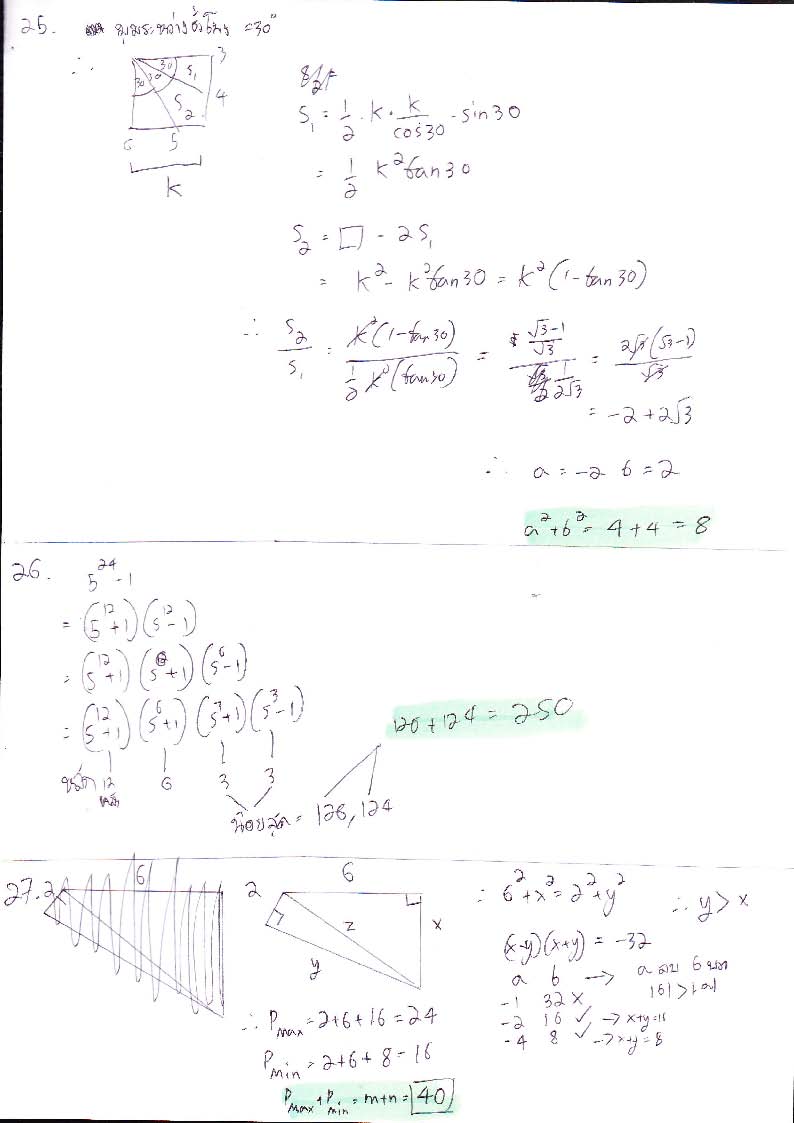 25. มุมระหว่างชั่วโมง = 30°
∴
3
30 S₁
30 30
S₂ 4
6 5
k
S₁ = 1/2 · k · k/cos30 · sin30
= 1/2 k² tan30
S₂ = □ - 2S₁
= k² - k² tan30 = k²(1 - tan30)
∴ S₂/S₁ = k²(1 - tan30) / (1/2 k²(tan30)) = ((√3-1)/√3) / (1/(2√3)) = 2√3(√3-1)/√3
= -2 + 2√3
∴ a = -2 b = 2
a² + b² = 4 + 4 = 8
26. 5²⁴ - 1
= (5¹² + 1)(5¹² - 1)
= (5¹² + 1)(5⁶ + 1)(5⁶ - 1)
= (5¹² + 1)(5⁶ + 1)(5³ + 1)(5³ - 1)
12 6 3 3
หลัก
น้อยสุด = 126, 124
126 + 124 = 250
27. 2 6
2 6
z x
y
∴ 6² + x² = 2² + y² ∴ y > x
(x-y)(x+y) = -32
a b → a ลบ b บวก
|b| > |a|
-1 32 ×
-2 16 ✓ → x+y=16
-4 8 ✓ → x+y=8
∴ Pmax = 2+6+16 = 24
Pmin = 2+6+8 = 16
Pmax + Pmin = m+n = 40